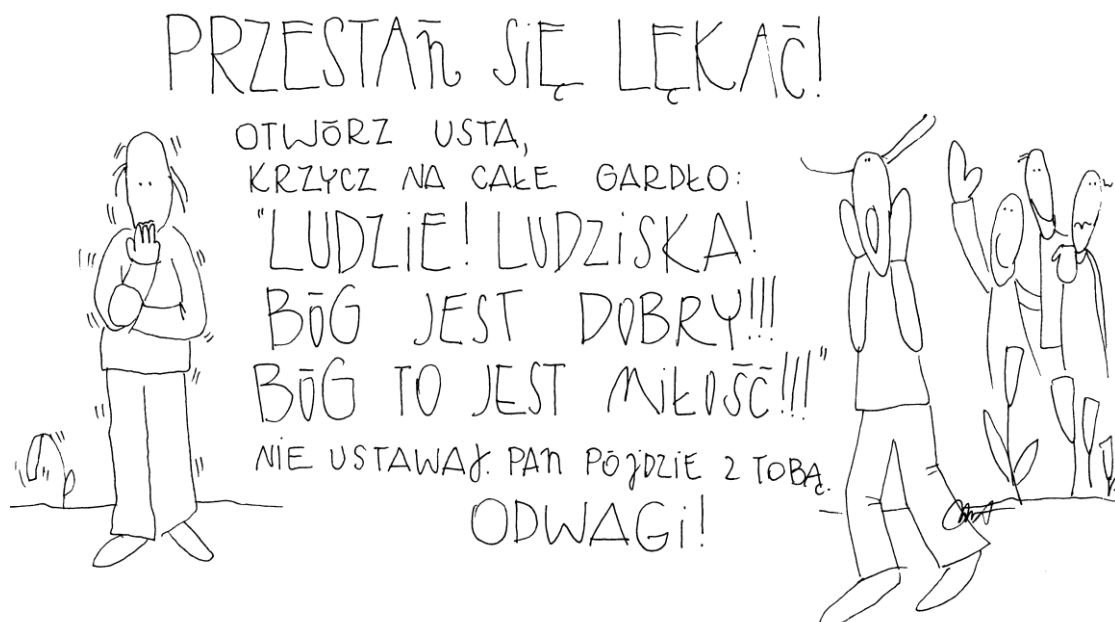 PRZESTAŃ SIĘ LĘKAĆ!
OTWÓRZ USTA,
KRZYCZ NA CAŁE GARDŁO:
"LUDZIE! LUDZISKA!
BÓG JEST DOBRY!!!
BÓG TO JEST MIŁOŚĆ!!!"
NIE USTAWAJ. PAN PÓJDZIE Z TOBĄ.
ODWAGI!